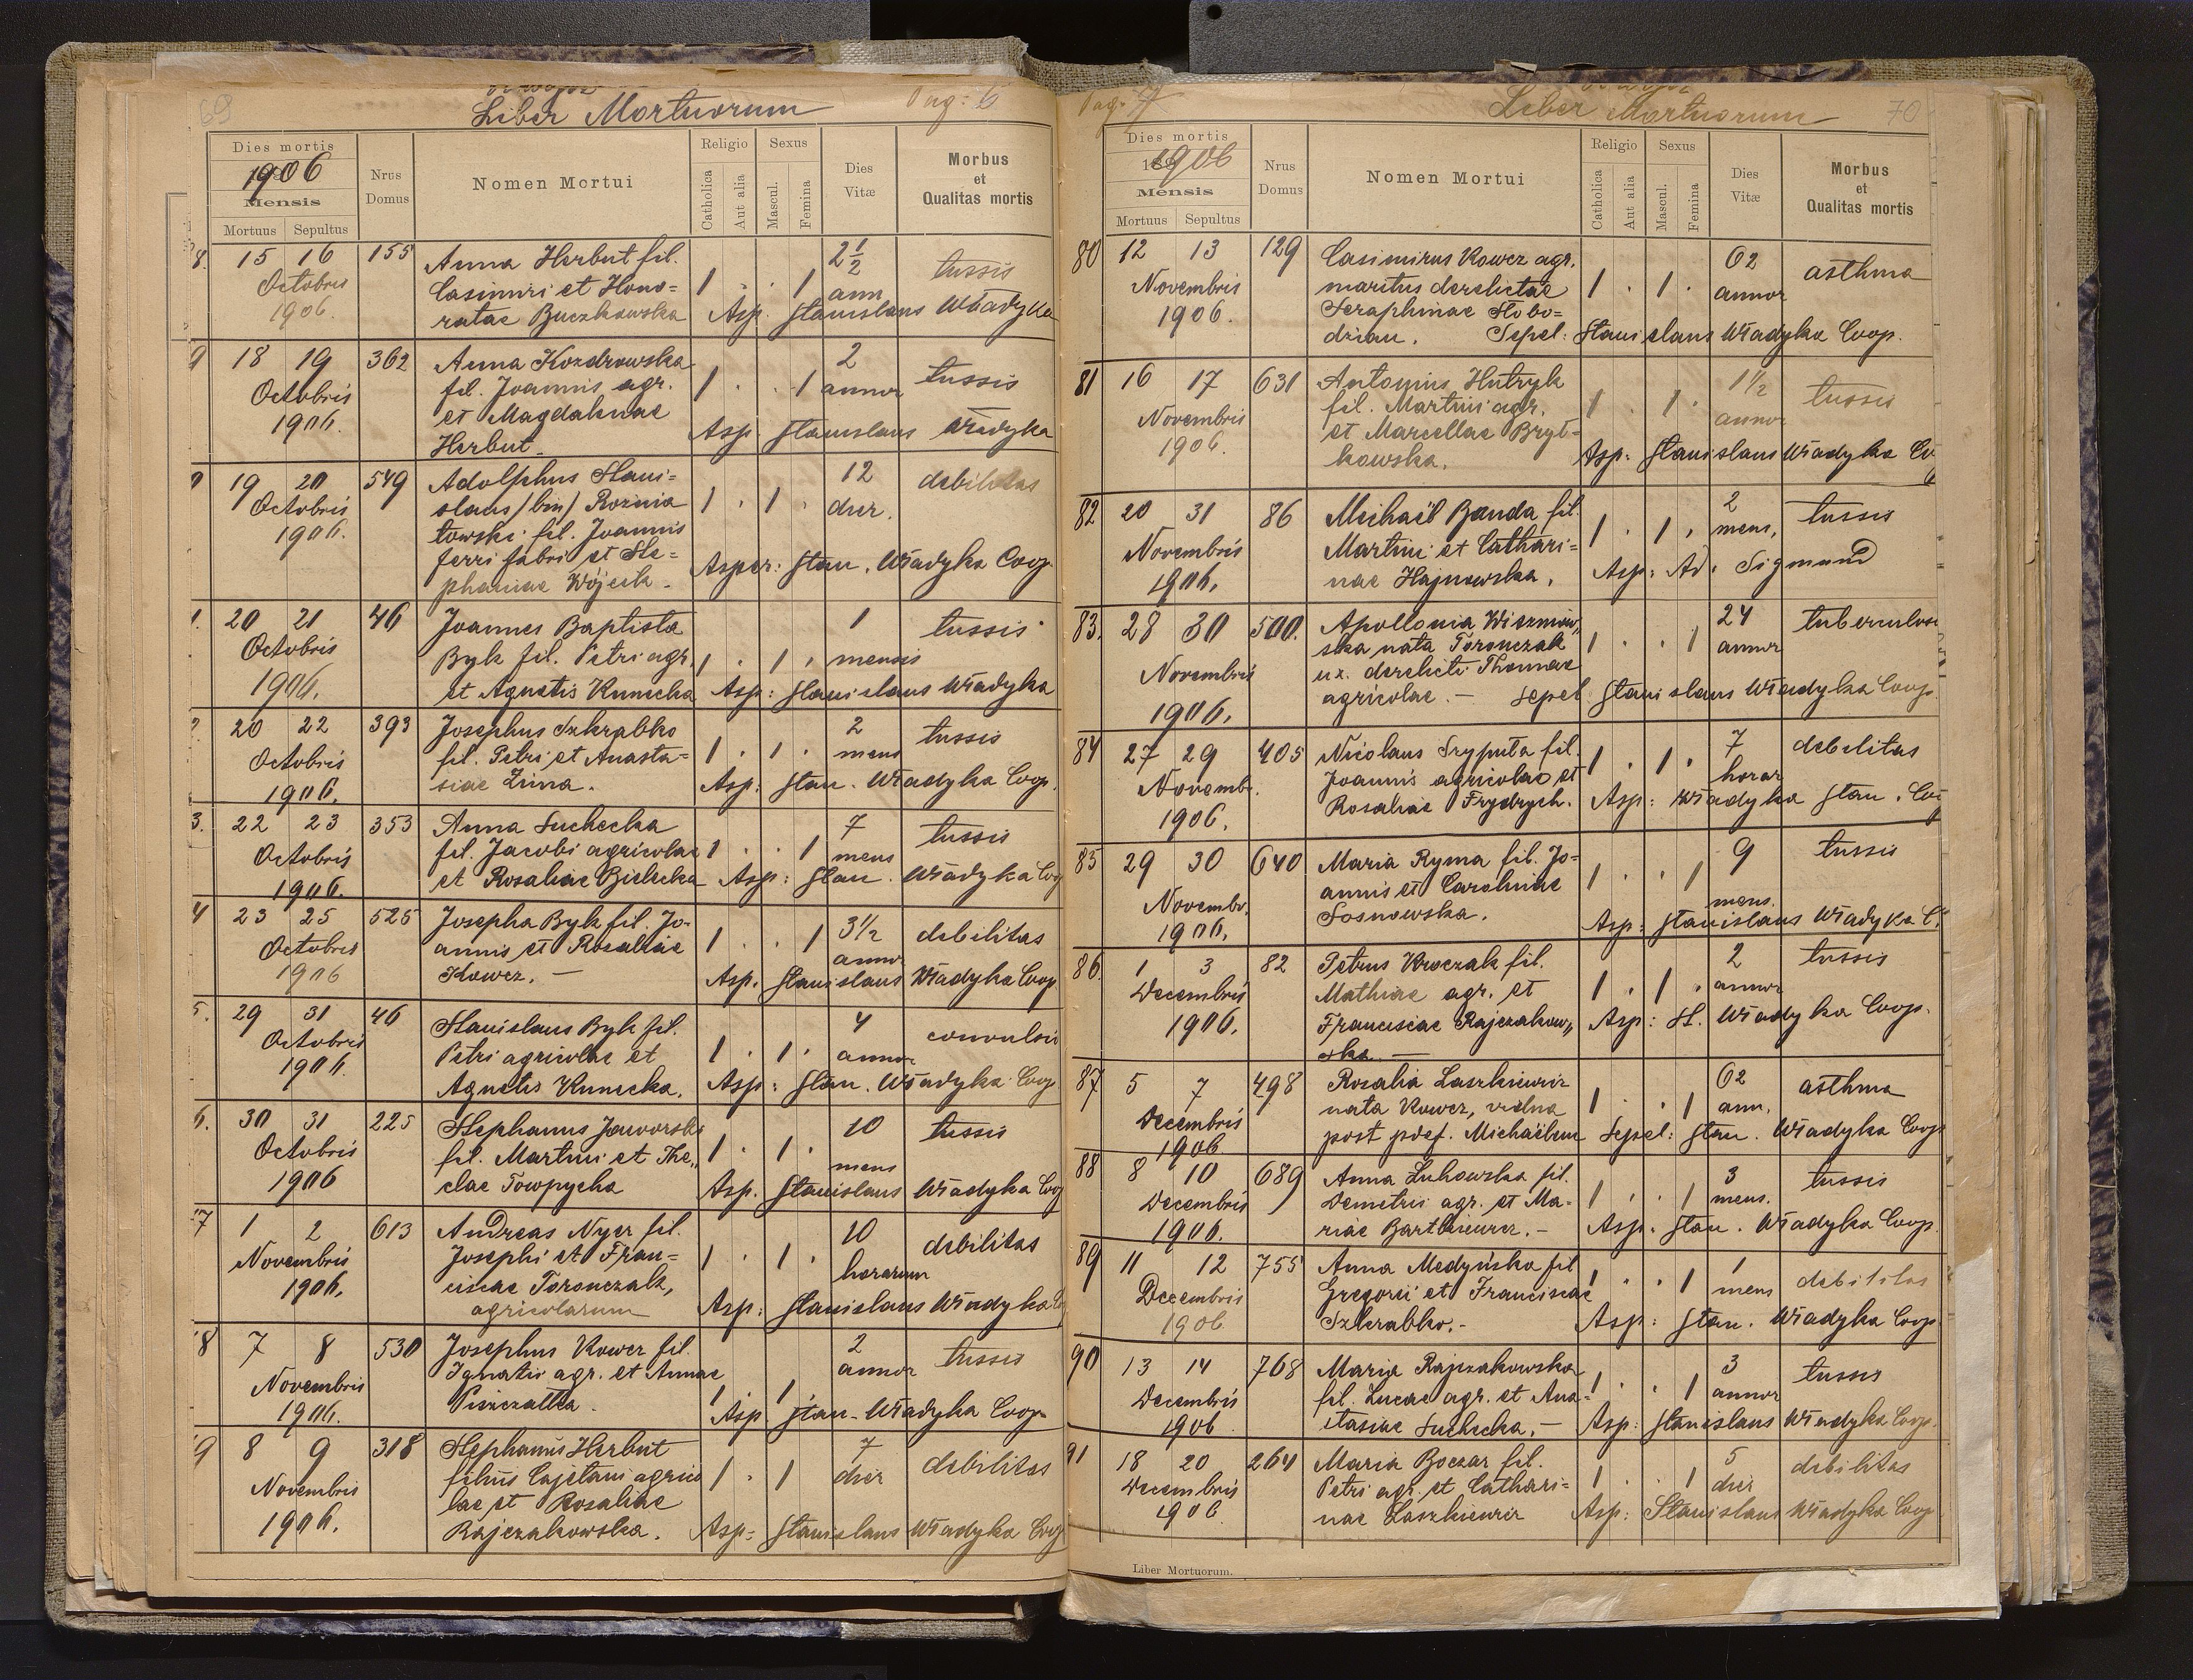 69
Liber Mortuorum
Pag: 6
Dies mortis
1906
Mensis
Mortuus Sepultus
Nrus Domus
Nomen Mortui
Religio
Catholica
Aut alia
Sexus
Mascul.
Femina
Dies Vitæ
Morbus et Qualitas mortis
8. 15 16 155 Anna Herbut fil. 2 1/2
Octobris Casimiri et Hono= 1 . . 1 ann tussis
1906. ratae Buczkowska Asp. Stanislaus Władyka
9 18 19 362 Anna Kozdrowska 2
Octobris fil. Joannis agr. 1 . . 1 annor tussis
1906. et Magdalenae Asp Stanislaus Władyka
Herbut.
19 20 549 Adolphus Stani= 12 debilitas
Octobris slaus /bin/ Roznia 1 . 1 . dier.
1906. towski fil. Joannis
ferri fabri et Ste= Asper: Stan. Władyka Coop.
phaniae Wójcik.
1. 20 21 46 Joannes Baptista 1 tussis
Octobris Byk fil. Petri agr. 1 . 1 . mensis
1906. et Agnetis Kunecka Asp: Stanislaus Władyka
2. 20 22 393 Josephus Szkrabko 2 tussis
Octobris fil. Petri et Anasta= 1 . 1 . mens
1906. siae Zima. Asp: Stan. Władyka Coop.
3. 22 23 353 Anna Suchecka 7 tussis
Octobris fil. Jacobi agricolae 1 . . 1 mens
1906. et Rosaliae Bielecka Asp: Stan. Władyka Coop
4 23 25 525 Josepha Byk fil. Jo- 3 1/2 debilitas
Octobris annis et Rosaliae 1 . . 1 annor
1906 Kowcz. — Asp. Stanislaus Władyka Coop
5. 29 31 46 Stanislaus Byk fil. 4 convulsio
Octobris Petri agricolae et 1 . 1 . annor
1906. Agnetis Kunecka. Asp: Stan. Władyka Coop
6. 30 31 225 Stephanus Jaworski 10 tussis
Octobris fil. Martini et The„ 1 . 1 . mens
1906 clae Towpycha Asp. Stanislaus Władyka Coop
7 1 2 613 Andreas Nyer fil. 10 debilitas
Novembris Josephi et Fran= 1 . 1 . horarum
1906. ciscae Toronczak,
agricolarum Asp: Stanislaus Władyka
8 7 8 530 Josephus Kowcz fil. 2 tussis
Novembris Ignatii agr. et Annae 1 1 annor
1906. Piszczatka. Asp Stan. Władyka Coop.
9 8 9 318 Stephanus Herbut 7 debilitas
Novembris filius Cajetani agrico 1 . 1 dier
1906. lae et Rosaliae
Rajczakowska. Asp: Stanislaus Władyka Coop
Pag. 7
Liber Mortuorum
70
Dies mortis
1906
Mensis
Mortuus Sepultus
Nrus Domus
Nomen Mortui
Religio
Catholica
Aut alia
Sexus
Mascul.
Femina
Dies Vitæ
Morbus et Qualitas mortis
80 12 13 129 Casimirus Kowcz agr. 62 asthma
Novembris maritus derelictae 1 . 1 . annor
1906. Seraphinae Słobo=
dzian. Sepel: Stanislaus Władyka Coop.
81 16 17 631 Antonius Hutryk 1 1/2 tussis
Novembris fil. Martini agr. 1 . 1 . annor
1906. et Marcellae Bryt=
kowska. Asp: Stanislaus Władyka Co
82 20 31 86 Michaël Banda fil. 2 tussis
Novembris Martini et Cathari= 1 . 1 . mens,
1906. nae Hajnowska. Asp: Ad. Sigmund
83. 28 30 500. Apollonia Wiszniow„ 24 tuberculosis
Novembris ska nata Toronczak 1 . . 1 annor
1906. ux. derelicti Thomae
agricolae. — Sepel Stanislaus Władyka Coop.
84 27 29 405 Nicolaus Sryputa fil. 7 debilitas
Novemb. Joannis agricolae et 1 . 1 . horar
1906. Rosaliae Frydrych. Asp: Władyka Stan. Coo
85 29 30 640 Maria Ryma fil. Jo= 9 tussis
Novemb. annis et Carolinae 1 . . 1 mens.
1906. Sosnowska. Asp: Stanislaus Władyka C.
86. 1 3 82 Petrus Kroczak fil. 2 tussis
Decembris Mathiae agr. et 1 . 1 . annor
1906. Franciscae Rajczakow„ Asp: St. Władyka Coop.
ska. —
87 5 7 498 Rosalia Laszkiewicz 62 asthma
Decembris nata Kowcz, vidua 1 . . 1 ann.
1906 post pdef. Michaëlem Sepel: Stan. Władyka Coop
88 8 10 689 Anna Łukowska fil. 3 tussis
Decembris Demetrii agr. et Ma= 1 . . 1 mens.
1906. riae Bartkiewicz. - Asp. Stan. Władyka Coop.
89 11 12 755 Anna Medyńska fil 1 debilitas
Decembris Gregorii et Franciscae 1 . . 1 mens
1906 Szkrabko. - Asp: Stan. Władyka Coop
90 13 14 768 Maria Rajczakowska 3 tussis
Decembris fil. Lucae agr. et Ana= 1 . . 1 annor
1906 stasiae Suchecka. — Asp: Stanislaus Władyka Coop.
91 18 20 264 Maria Boczar fil. 5 debilitas
Decembris Petri agr. et Cathari= 1 . . 1 dier
1906. nae Laszkiewicz Asp: Stanislaus Władyka Coop
Liber Mortuorum.